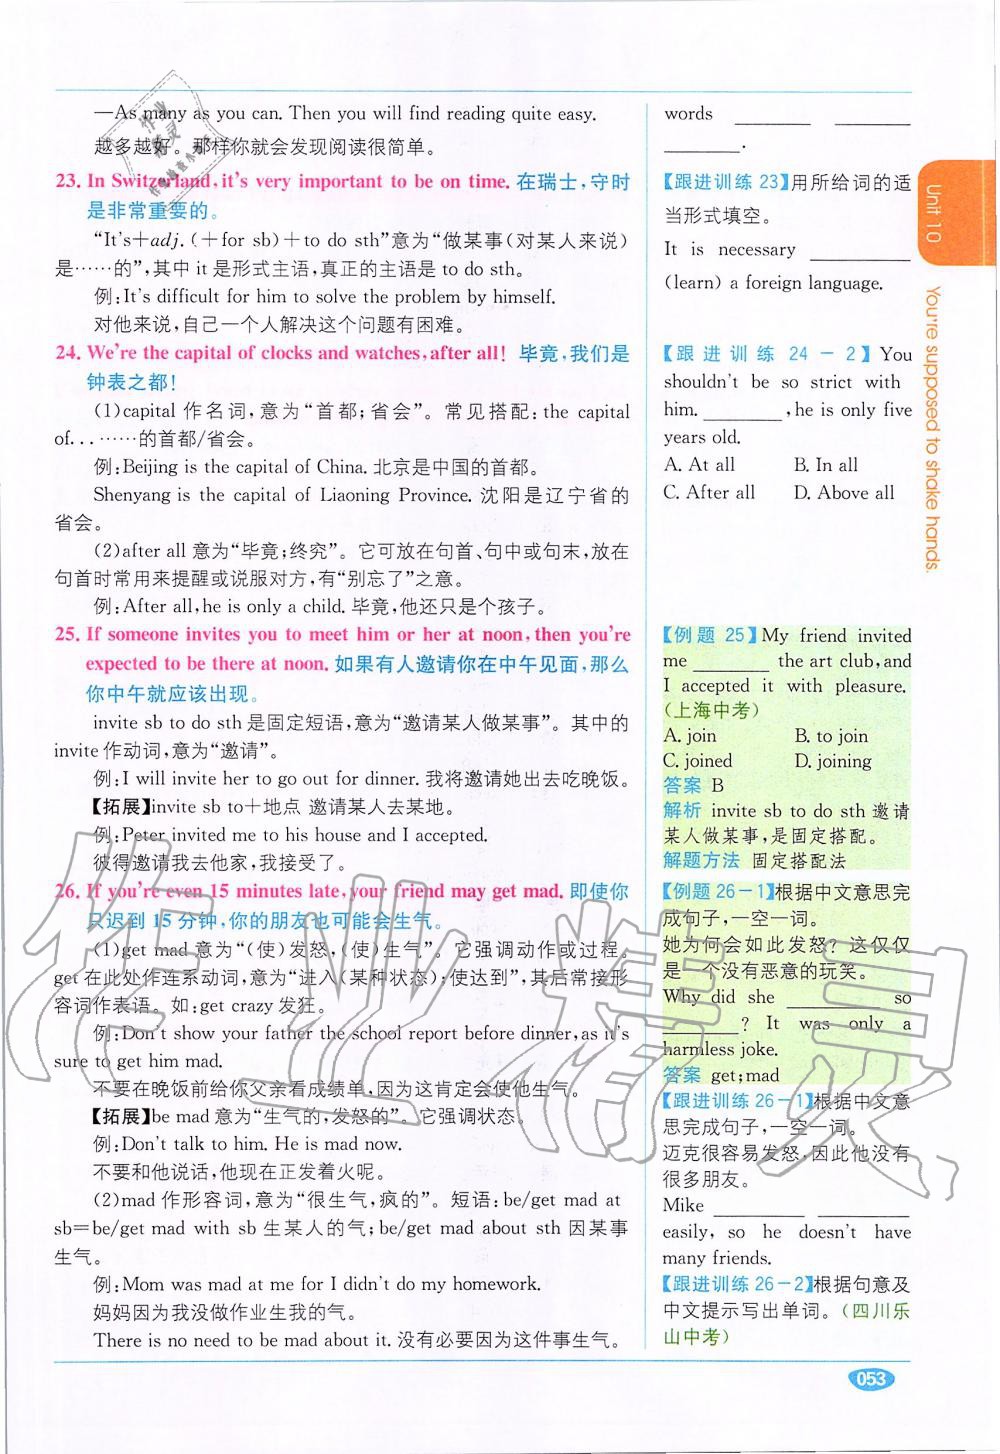 —As many as you can. Then you will find reading quite easy.
越多越好。那样你就会发现阅读很简单。
23. In Switzerland, it's very important to be on time. 在瑞士,守时
是非常重要的。
“It's+adj.(+for sb)+to do sth”意为“做某事(对某人来说)
是……的”,其中 it 是形式主语,真正的主语是 to do sth。
例:It's difficult for him to solve the problem by himself.
对他来说,自己一个人解决这个问题有困难。
24. We're the capital of clocks and watches, after all! 毕竟,我们是
钟表之都!
(1)capital 作名词,意为“首都;省会”。常见搭配:the capital
of... ……的首都/省会。
例:Beijing is the capital of China. 北京是中国的首都。
Shenyang is the capital of Liaoning Province. 沈阳是辽宁省的
省会。
(2)after all 意为“毕竟;终究”。它可放在句首、句中或句末,放在
句首时常用来提醒或说服对方,有“别忘了”之意。
例:After all, he is only a child. 毕竟,他还只是个孩子。
25. If someone invites you to meet him or her at noon, then you're
expected to be there at noon. 如果有人邀请你在中午见面,那么
你中午就应该出现。
invite sb to do sth 是固定短语,意为“邀请某人做某事”。其中的
invite 作动词,意为“邀请”。
例:I will invite her to go out for dinner. 我将邀请她出去吃晚饭。
【拓展】invite sb to+地点 邀请某人去某地。
例:Peter invited me to his house and I accepted.
彼得邀请我去他家,我接受了。
26. If you're even 15 minutes late, your friend may get mad. 即使你
只迟到 15 分钟,你的朋友也可能会生气。
(1)get mad 意为“(使)发怒,(使)生气”。它强调动作或过程。
get 在此处作连系动词,意为“进入(某种状态);使达到”,其后常接形
容词作表语。如:get crazy 发狂。
例:Don't show your father the school report before dinner, as it's
sure to get him mad.
不要在晚饭前给你父亲看成绩单,因为这肯定会使他生气。
【拓展】be mad 意为“生气的,发怒的”。它强调状态。
例:Don't talk to him. He is mad now.
不要和他说话,他现在正发着火呢。
(2)mad 作形容词,意为“很生气,疯的”。短语:be/get mad at
sb=be/get mad with sb 生某人的气;be/get mad about sth 因某事
生气。
例:Mom was mad at me for I didn't do my homework.
妈妈因为我没做作业生我的气。
There is no need to be mad about it. 没有必要因为这件事生气。
words ________ ________
________.
【跟进训练 23】用所给词的适
当形式填空。
It is necessary ________
(learn) a foreign language.
【跟进训练 24-2】You
shouldn't be so strict with
him. ________, he is only five
years old.
A. At all B. In all
C. After all D. Above all
【例题 25】My friend invited
me ________ the art club, and
I accepted it with pleasure.
(上海中考)
A. join B. to join
C. joined D. joining
答案 B
解析 invite sb to do sth 邀请
某人做某事,是固定搭配。
解题方法 固定搭配法
【例题 26-1】根据中文意思完
成句子,一空一词。
她为何会如此发怒?这仅仅
是一个没有恶意的玩笑。
Why did she ________ so
________? It was only a
harmless joke.
答案 get;mad
【跟进训练 26-1】根据中文意
思完成句子,一空一词。
迈克很容易发怒,因此他没有
很多朋友。
Mike ________ ________
easily, so he doesn't have
many friends.
【跟进训练 26-2】根据句意及
中文提示写出单词。(四川乐
山中考)
Unit 10
You're supposed to shake hands.
053
作业精灵